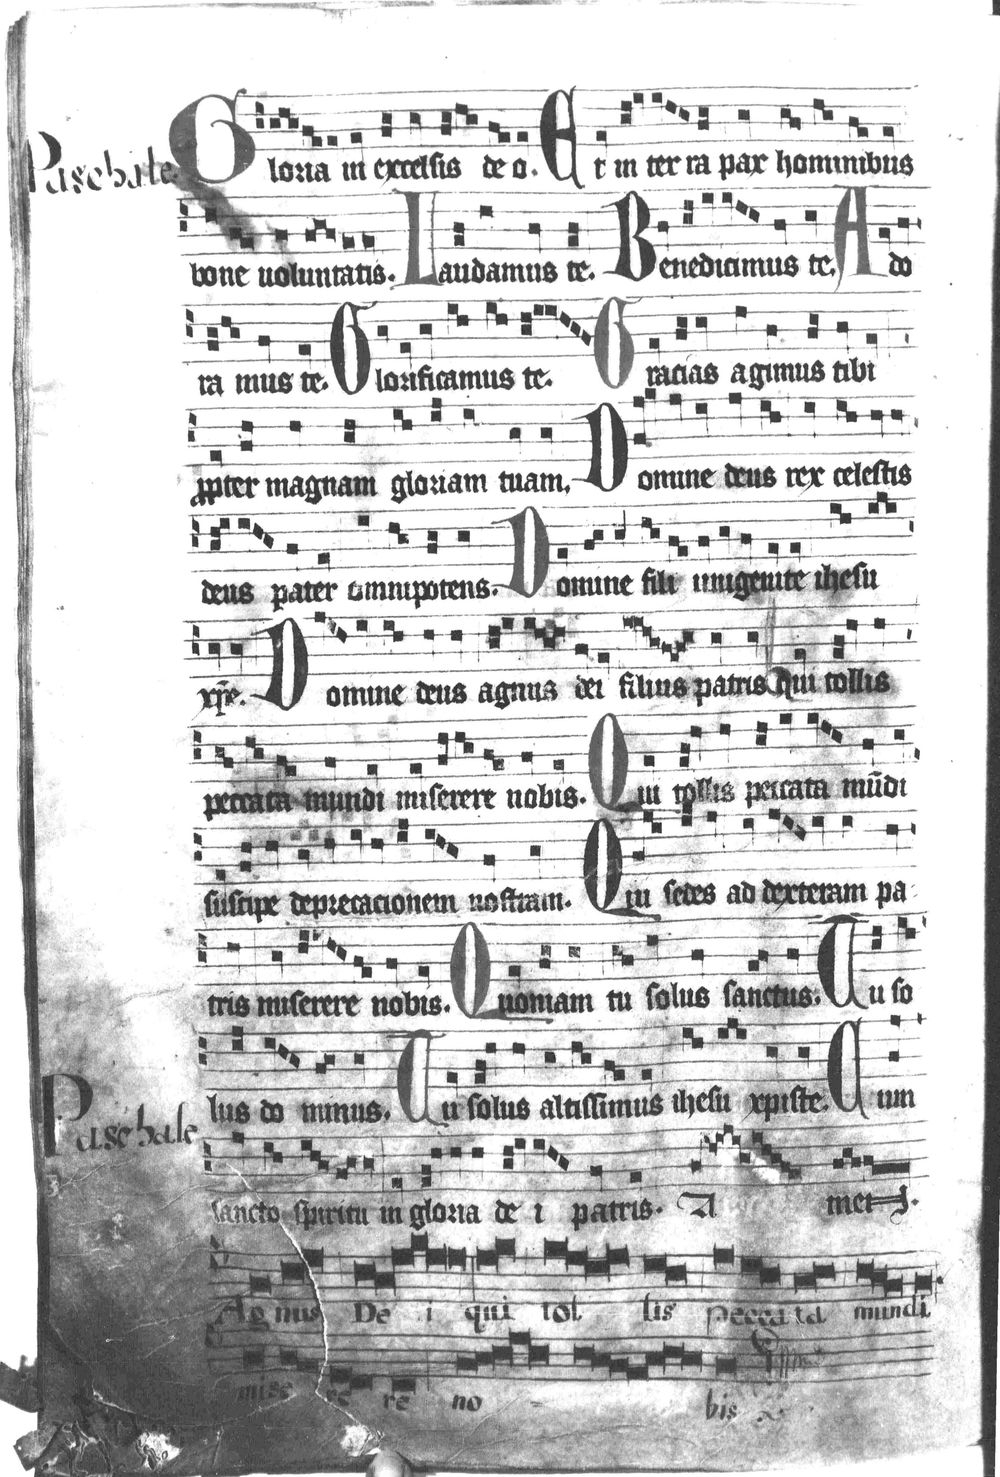 Paschale.
Gloria in excelsis deo. Et in terra pax hominibus
bone uoluntatis. Laudamus te. Benedicimus te. Ado
ramus te. Glorificamus te. Gracias agimus tibi
ꝓpter magnam gloriam tuam. Domine deus rex celestis
deus pater omnipotens. Domine fili unigenite ihesu
xp̄e. Domine deus agnus dei filius patris Qui tollis
peccata mundi miserere nobis. Qui tollis peccata mūdi
suscipe deprecacionem nostram. Qui sedes ad dexteram pa
tris miserere nobis. Quoniam tu solus sanctus. Tu so
lus dominus. Tu solus altissimus ihesu xpiste. Cum
Paschale
sancto spiritu in gloria dei patris. Amen.
Agnus De i qui tol lis peccata mundi
mise re re no bis